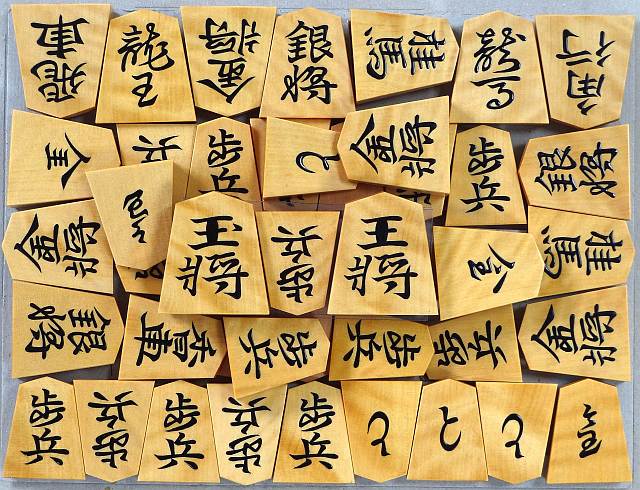 飛車
龍王
金将
銀将
桂馬
龍馬
角行
全
兵
歩兵
と
金将
歩兵
銀将
金将
王将
歩兵
王将
桂馬
銀将
香車
歩兵
歩兵
歩兵
金将
歩兵
歩兵
歩兵
歩兵
歩兵
と
と
と